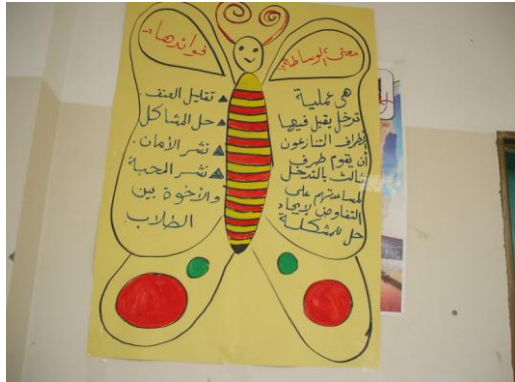 معنى الوساطة:
هي عملية
تدخل يقبل فيها
أطراف التنازعون
أن يقوم طرف
ثالث بالتدخل
لمساعدتهم على
التفاوض لإيجاد
حل للمشكلة
فوائدها:
تقليل العنف.
حل المشاكل
نشر الأمان.
نشر المحبة
والأخوة بين
الطلاب.